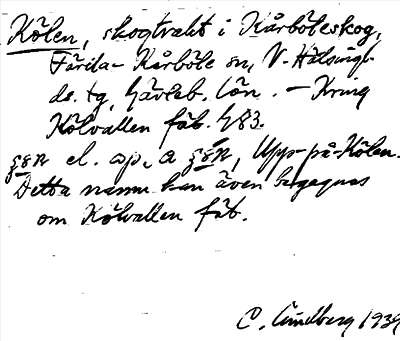 Kölen, skogtrakt i Kårböleskog,
Färila-Kårböle sn, V-Hälsingl.
ds. tg, Gävleb. län. – Kring
Kölvallen fäb. 483.
el. ap. a, Upp-på-Kölen.
Detta namn kan även begagnas
om Kölvallen fäb.
C. Lindberg 1939